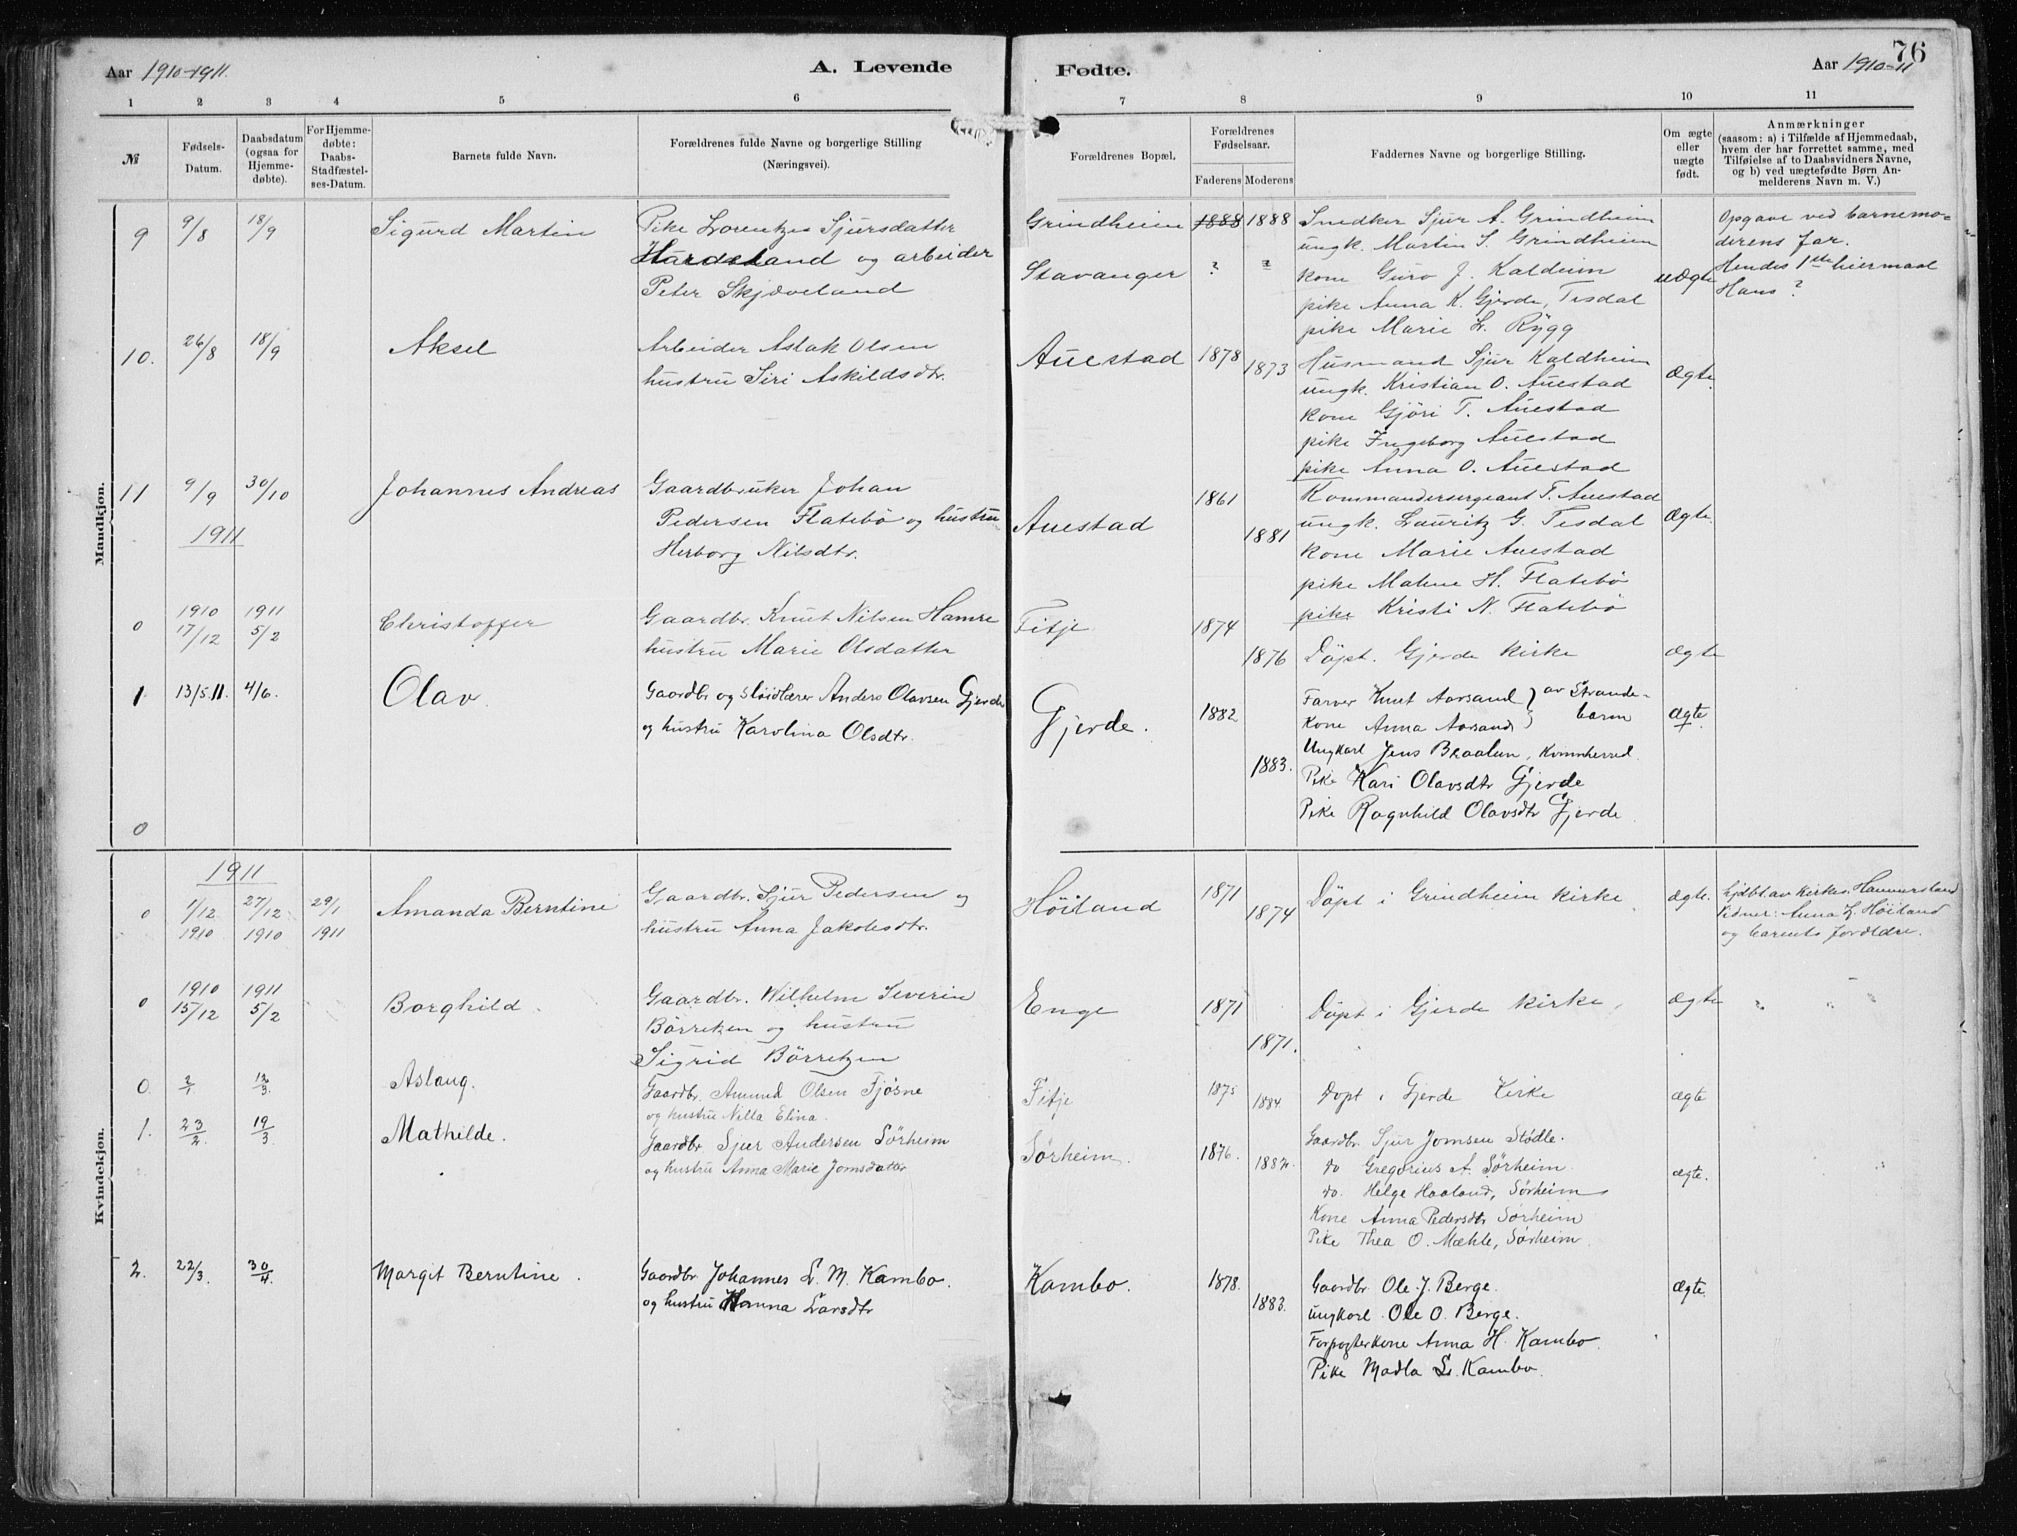 Aar 1910-1911.
A. Levende
Fødte.
76
Aar 1910-11
1 2 3 4 5 6 7 8 9 10 11
№
Fødsels-
Datum.
Daabsdatum
(ogsaa for
Hjemme-
døbte).
For Hjemme-
døbte:
Daabs-
Stadfæstel-
ses-Datum.
Barnets fulde Navn.
Forældrenes fulde Navne og borgerlige Stilling
(Næringsvei).
Forældrenes Bopæl.
Forældrenes
Fødselsaar.
Faderens Moderens
Faddernes Navne og borgerlige Stilling.
Om ægte
eller
uægte
født.
Anmærkninger
(saasom: a) i Tilfælde af Hjemmedaab,
hvem der har forrettet samme, med
Tilføielse af to Daabsvidners Navne,
og b) ved uægtefødte Børn An-
melderens Navn m. V.)
Mandkjøn.
9 9/8 18/9 Sigurd Martin
Pike Lorentze Sjursdatter
Hardeland og arbeider
Peter Skjæveland
Grindheim 1888 1888
Stavanger ? ?
Snedker Sjur A. Grindheim
ungk. Martin S. Grindheim
kone Guro J. Kaldeim
pike Anna K. Gjerde, Tesdal
pike Marie L. Rygg
uægte
Opgave ved barnemo-
derens far.
Hendes 1ste leiermaal
Hans ?
10. 26/8 18/9 Aksel
Arbeider Aslak Olsen
hustru Siri Askildsdtr.
Auestad 1878 1873
Husmand Sjur Kaldheim
ungk. Kristian O. Auestad
kone Gjøri T. Auestad
pike Ingeborg Auestad
pike Anna O. Auestad
ægte.
11 9/9 30/10 Johannes Andreas
Gaardbruker Johan
Pedersen Flatebø og hustru
Herborg Nilsdtr.
Auestad 1861 1881
Kommandersergeant T. Auestad
ungk. Lauritz G. Tesdal
kone Marie Auestad
pike Malene H. Flatebø
pike Kristi N. Flatebø
ægte.
1911
0 1910 17/12 1911 5/2 Christoffer
Gaardbr. Knut Nilsen Hamre
hustru Marie Olsdatter
Fitje 1874 1876
Døpt. Gjerde kirke
ægte
1 13/5 11. 4/6. Olav.
Gaardbr og sløidlærer Anders Olavsen Gjerde
og hustru Karolina Olsdtr.
Gjerde. 1882 1883.
Farver Knut Aarsand } av Strande-
Kone Anna Aarsand } barm
Ungkarl Jens Braaten, Kvinnherred.
Pike Kari Olavsdtr Gjerde
Pike Ragnhild Olavsdtr Gjerde.
ægte.
0
Kvindekjøn.
1911
0 1/12 1910 27/12 1910 29/1 1911 Amanda Berntine
Gaardbr. Sjur Pedersen og
hustru Anna Jakobsdtr.
Høiland 1871 1874
Døpt i Grindheim kirke
ægte.
hjdbt av kirkes. Hammersland
Vidner: Anna L. Høiland
og barnets forældre.
0 1910 15/12 1911 5/2 Borghild.
Gaardbr. Wilhelm Severin
Børretzen og hustru
Sigrid Børretzen
Enge 1871 1871.
Døpt i Gjerde kirke
ægte " " "
0 2/1 12/3 Aslaug.
Gaardbr. Amund Olsen Fjøsne
og hustru Nilla Elina.
Fitje 1875 1884.
Døpt i Gjerde Kirke
ægte
1. 23/2. 19/3 Mathilde.
Gaardbr Sjur Andersen Sørheim
og hustru Anna Marie Jomsdatter
Sørheim. 1876. 1882.
Gaardbr. Sjur Jomsen Stødle.
do Gregorius A. Sørheim.
do. Helge Haaland, Sørheim
Kone Anna Pedersdtr Sørheim
Pike Thea O. Mæhle, Sørheim.
ægte.
2. 22/3. 30/4. Margit Berntine.
Gaardbr Johannes L. M. Kambo.
og hustru Hanna Larsdtr
Kambo. 1878. 1883.
Gaardbr Ole J. Berge.
Ungkarl. Ole O. Berge.
Forpagterkone Anna H. Kambo.
Pike Madla L. Kambo.
ægte.